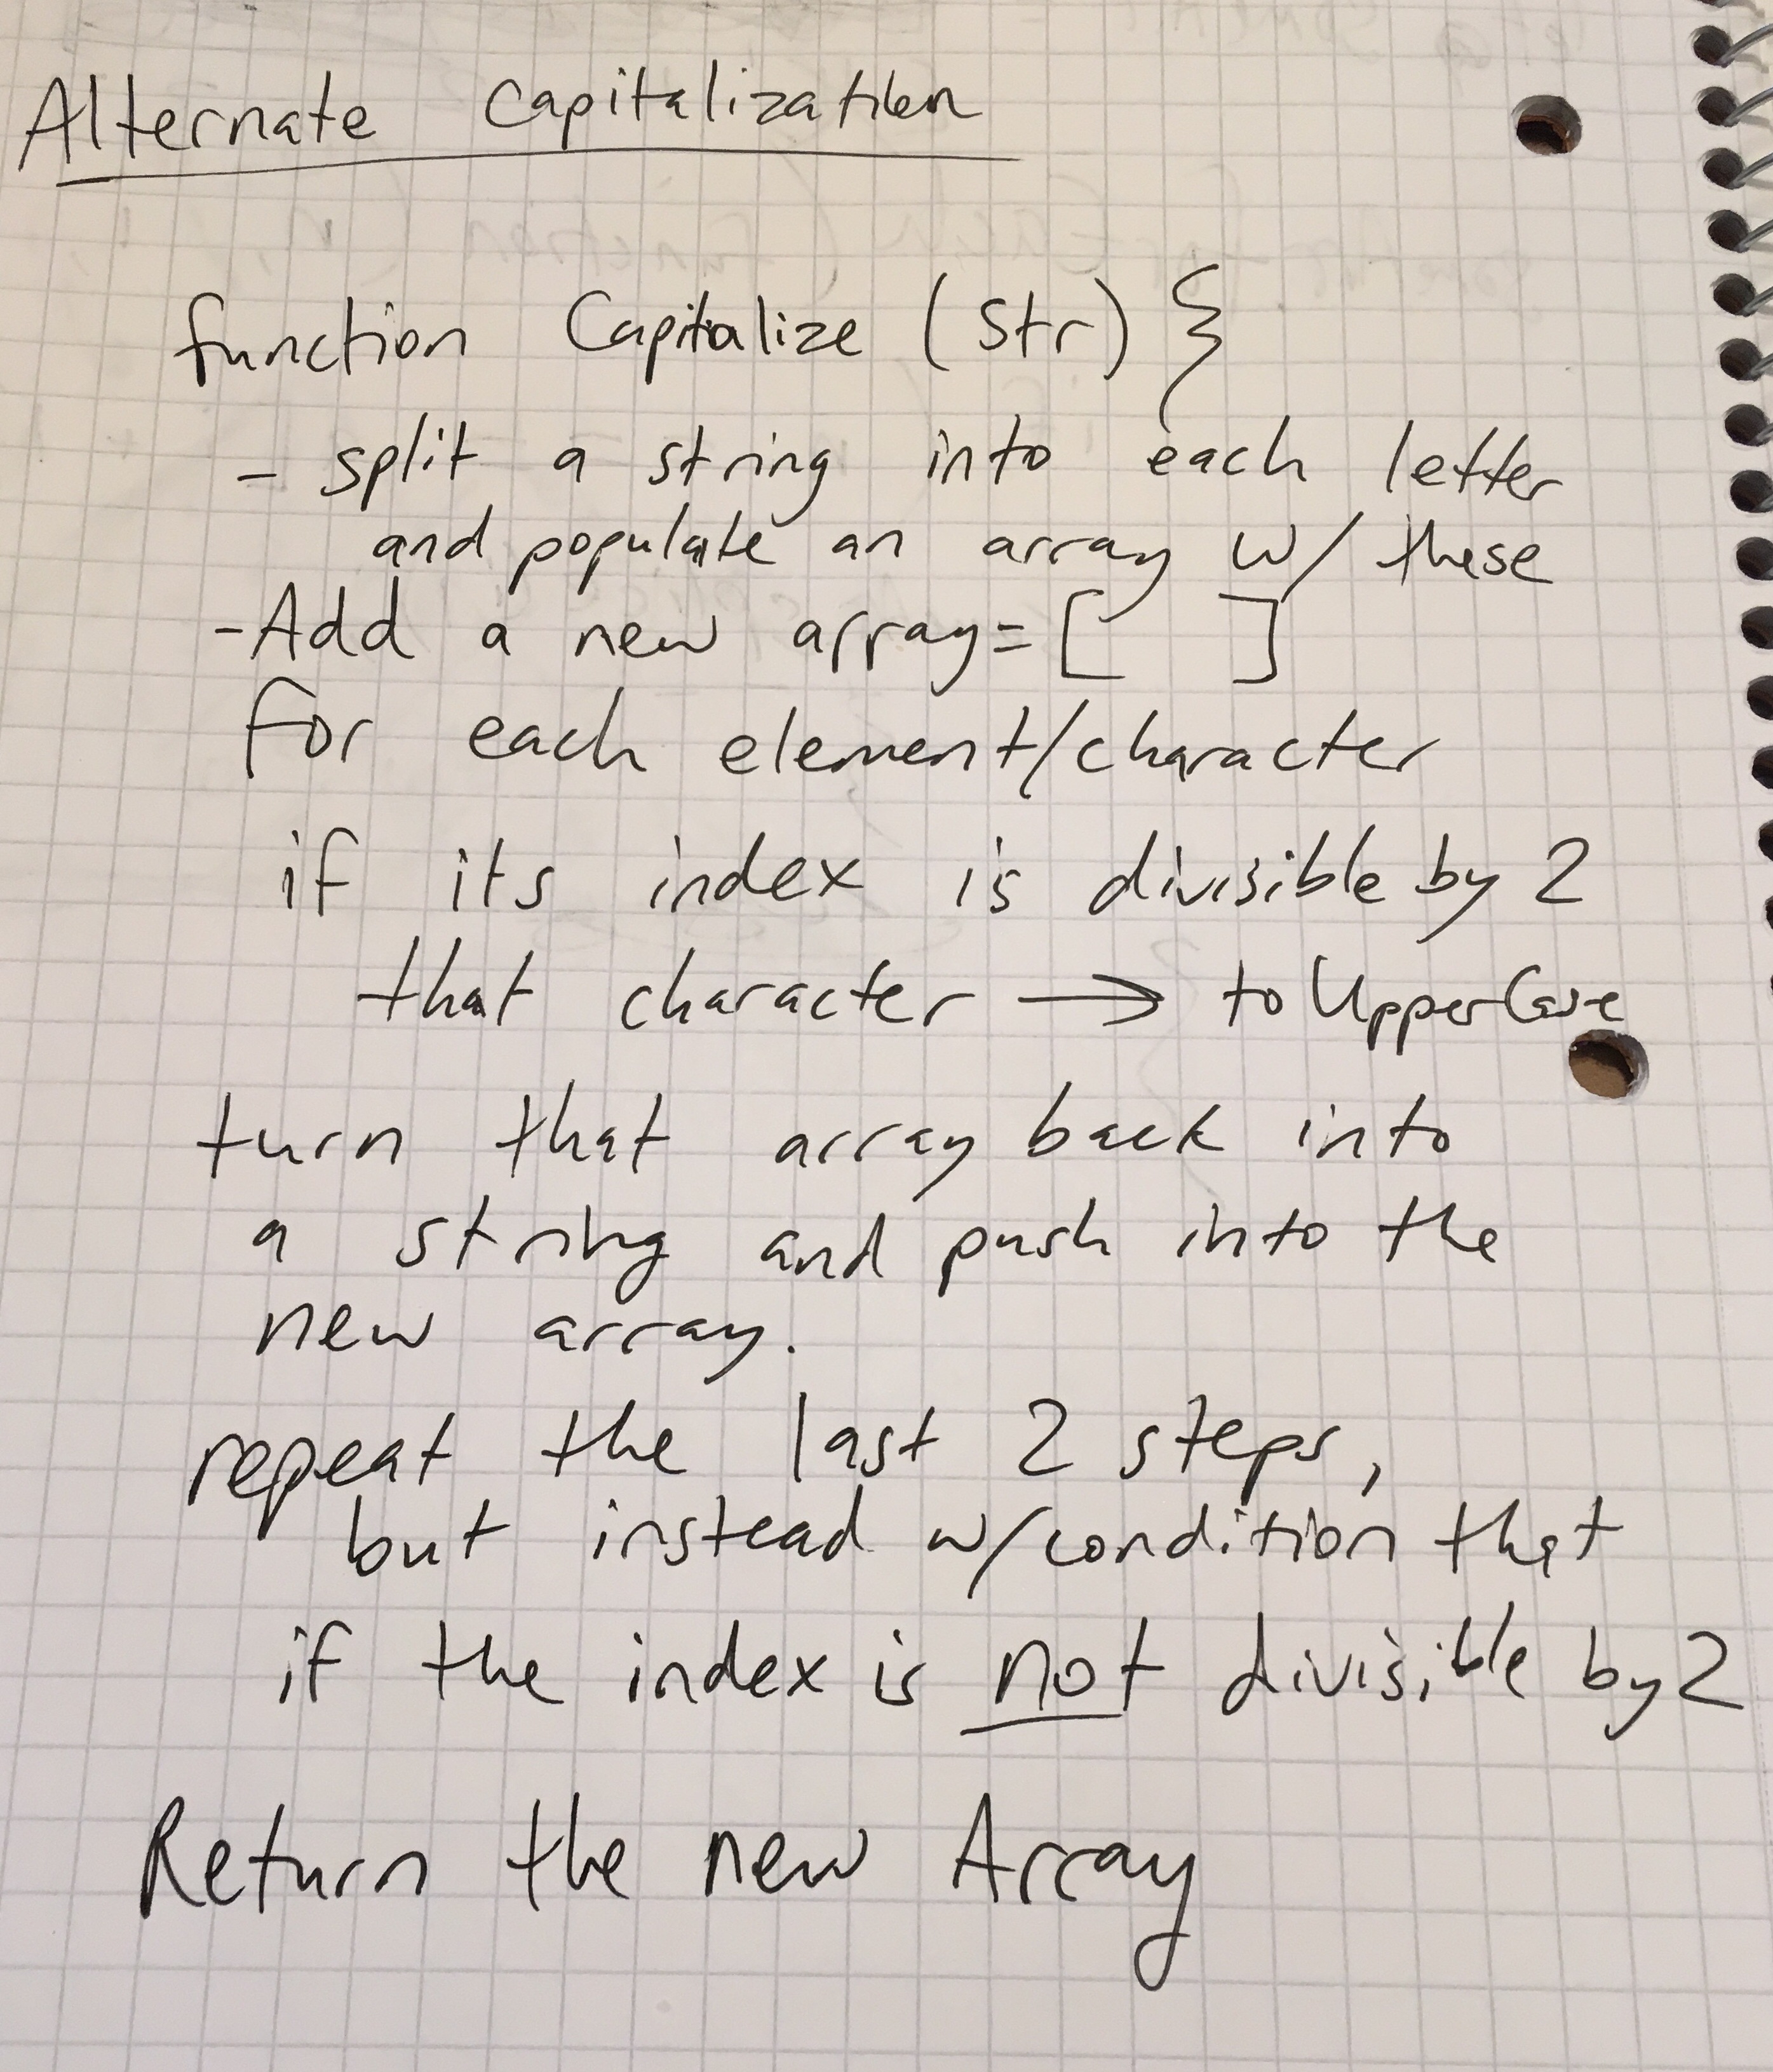 Alternate Capitalization
function Capitalize (str) {
- split a string into each letter
and populate an array w/ these
-Add a new array= [ ]
for each element/character
if its index is divisible by 2
that character → toUpperCase
turn that array back into
a string and push into the
new array.
repeat the last 2 steps,
but instead w/condition that
if the index is not divisible by 2
Return the new Array